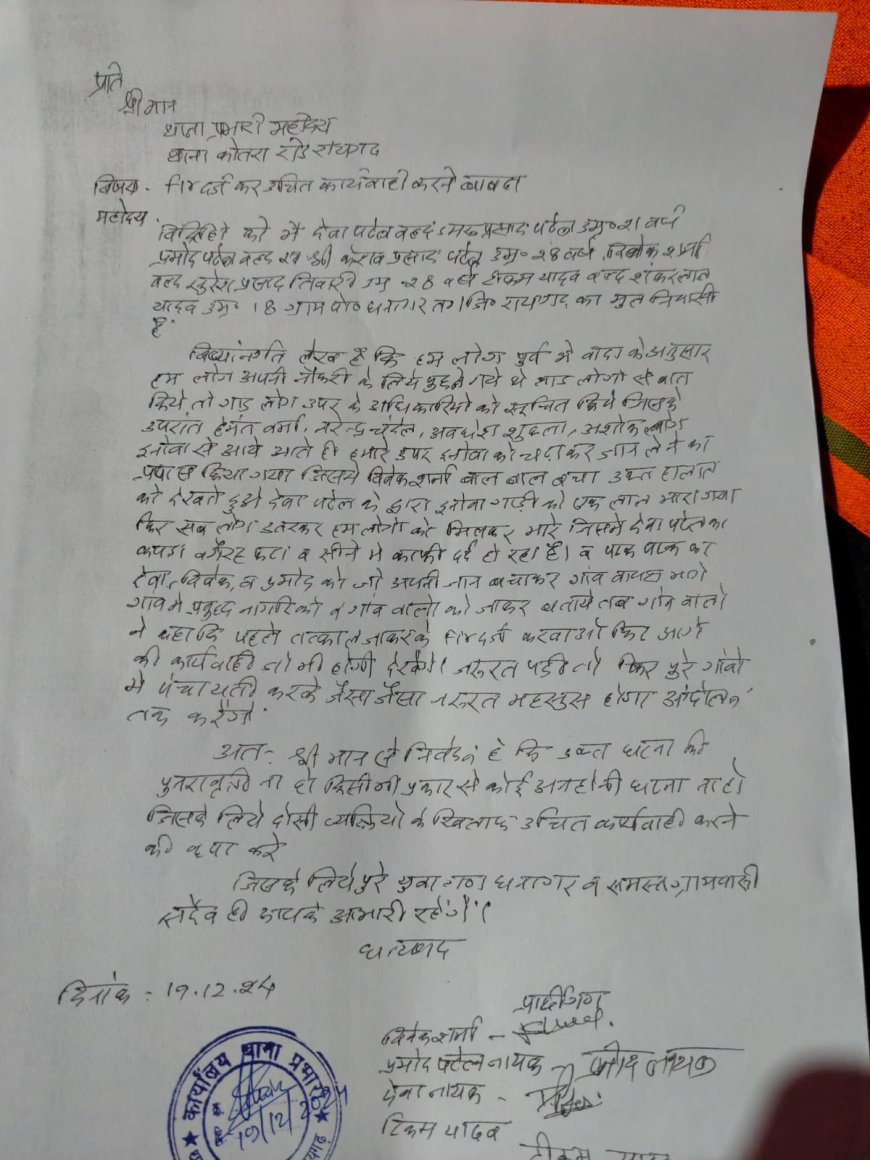 प्रति
श्री मान
थाना प्रभारी महोदय
थाना कोतरा रोड रायगढ़
विषय - FIR दर्ज कर उचित कार्यवाही करने बाबद।
महोदय,
को मैं देवा पटेल वल्द प्रसाद पटेल उम्र 21 वर्ष
प्रमोद पटेल वल्द श्री केशव प्रसाद पटेल उम्र 28 वर्ष, शर्मा
वल्द प्रसाद तिवारी उम्र 28 वर्ष टीकम यादव वल्द शंकरलाल
यादव उम्र 18 ग्राम पो० धनागर त० जि० रायगढ़ का मुल निवासी
है
लेख है कि हम लोग पुर्व में वादा के अनुसार
हम लोग अपनी नौकरी के लिये पुछने गये थे गार्ड लोगो से बात
किये तो गार्ड लोग उपर के अधिकारियो को सुचित किये जिसके
उपरांत हेमंत वर्मा, नरेन्द्र चंदेल, अवधेश शुक्ला, अशोक
इनोवा से आये आते ही हमारे उपर इनोवा को चढा कर जान लेने का
प्रयास किया गया जिसमे विवेक शर्मा बाल बाल बचा उक्त हालात
को देखते हुओ देवा पटेल के द्वारा इनोवा गाड़ी को एक लात मारा गया
फिर सब लोग उतरकर हम लोगो को मिलकर मारे जिसमे देवा पटेल का
कपडा वगैरह फटा व सीने मे काफी दर्द हो रहा है। व
देवा, विवेक, व प्रमोद को जो अपनी जान बचाकर गांव वापस भागे
गांव मे प्रबुद्ध नागरिको व गांव वालो को जाकर बताये तब गांव वालो
ने कहा कि पहले तत्काल जाकर के FIR दर्ज करवाओ फिर आगे
की कार्यवाही जो भी होगी देखेंगे। जरुरत पडी तो फिर पुरे गांवो
मे पंचायती करके जैसा जैसा जरुरत महसुस होगा आंदोलन
तक करेंगे
अतः श्री मान से निवेदन है कि उक्त घटना की
पुनरावृत्ती ना हो किसी भी प्रकार से कोई अनहोनी घटना ना हो
जिसके लिये दोसी व्यक्तियो के खिलाफ उचित कार्यवाही करने
की कृपा करे
जिसके लिये पुरे युवा गण धनागर व समस्त ग्रामवासी
सदैव ही आपके आभारी रहेंगें।
धन्यवाद
दिनांक - 19.12.24
प्रार्थीगण
विवेक शर्मा -
प्रमोद पटेल नायक प्रमोद नायक
देवा नायक -
टिकम यादव
टीकम
कार्यालय थाना प्रभारी
19/12/2024